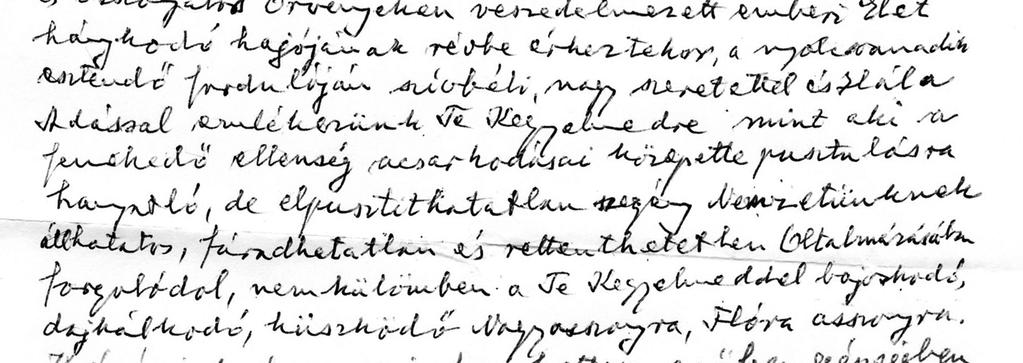 és iszonyatos Örvényeken veszedelmezett emberi Élet
hánykodó hajójának révbe érkeztekor, a nyolcvanadik
esztendő fordulóján szívbéli, nagy szeretettel és Hála
Adással emlékezünk Te Kegyelmedre mint aki a
fenekedő ellenség acsarkodásai közepette pusztulásra
hanyatló, de elpusztíthatatlan szegény Nemzetünknek
állhatatos, fáradhatatlan és rettenthetetlen Oltalmazásában
forgolódol, nemkülömben a Te Kegyelmeddel bajoskodó,
dajkálkodó, küszködő Nagyasszonyra, Flóra asszonyra.